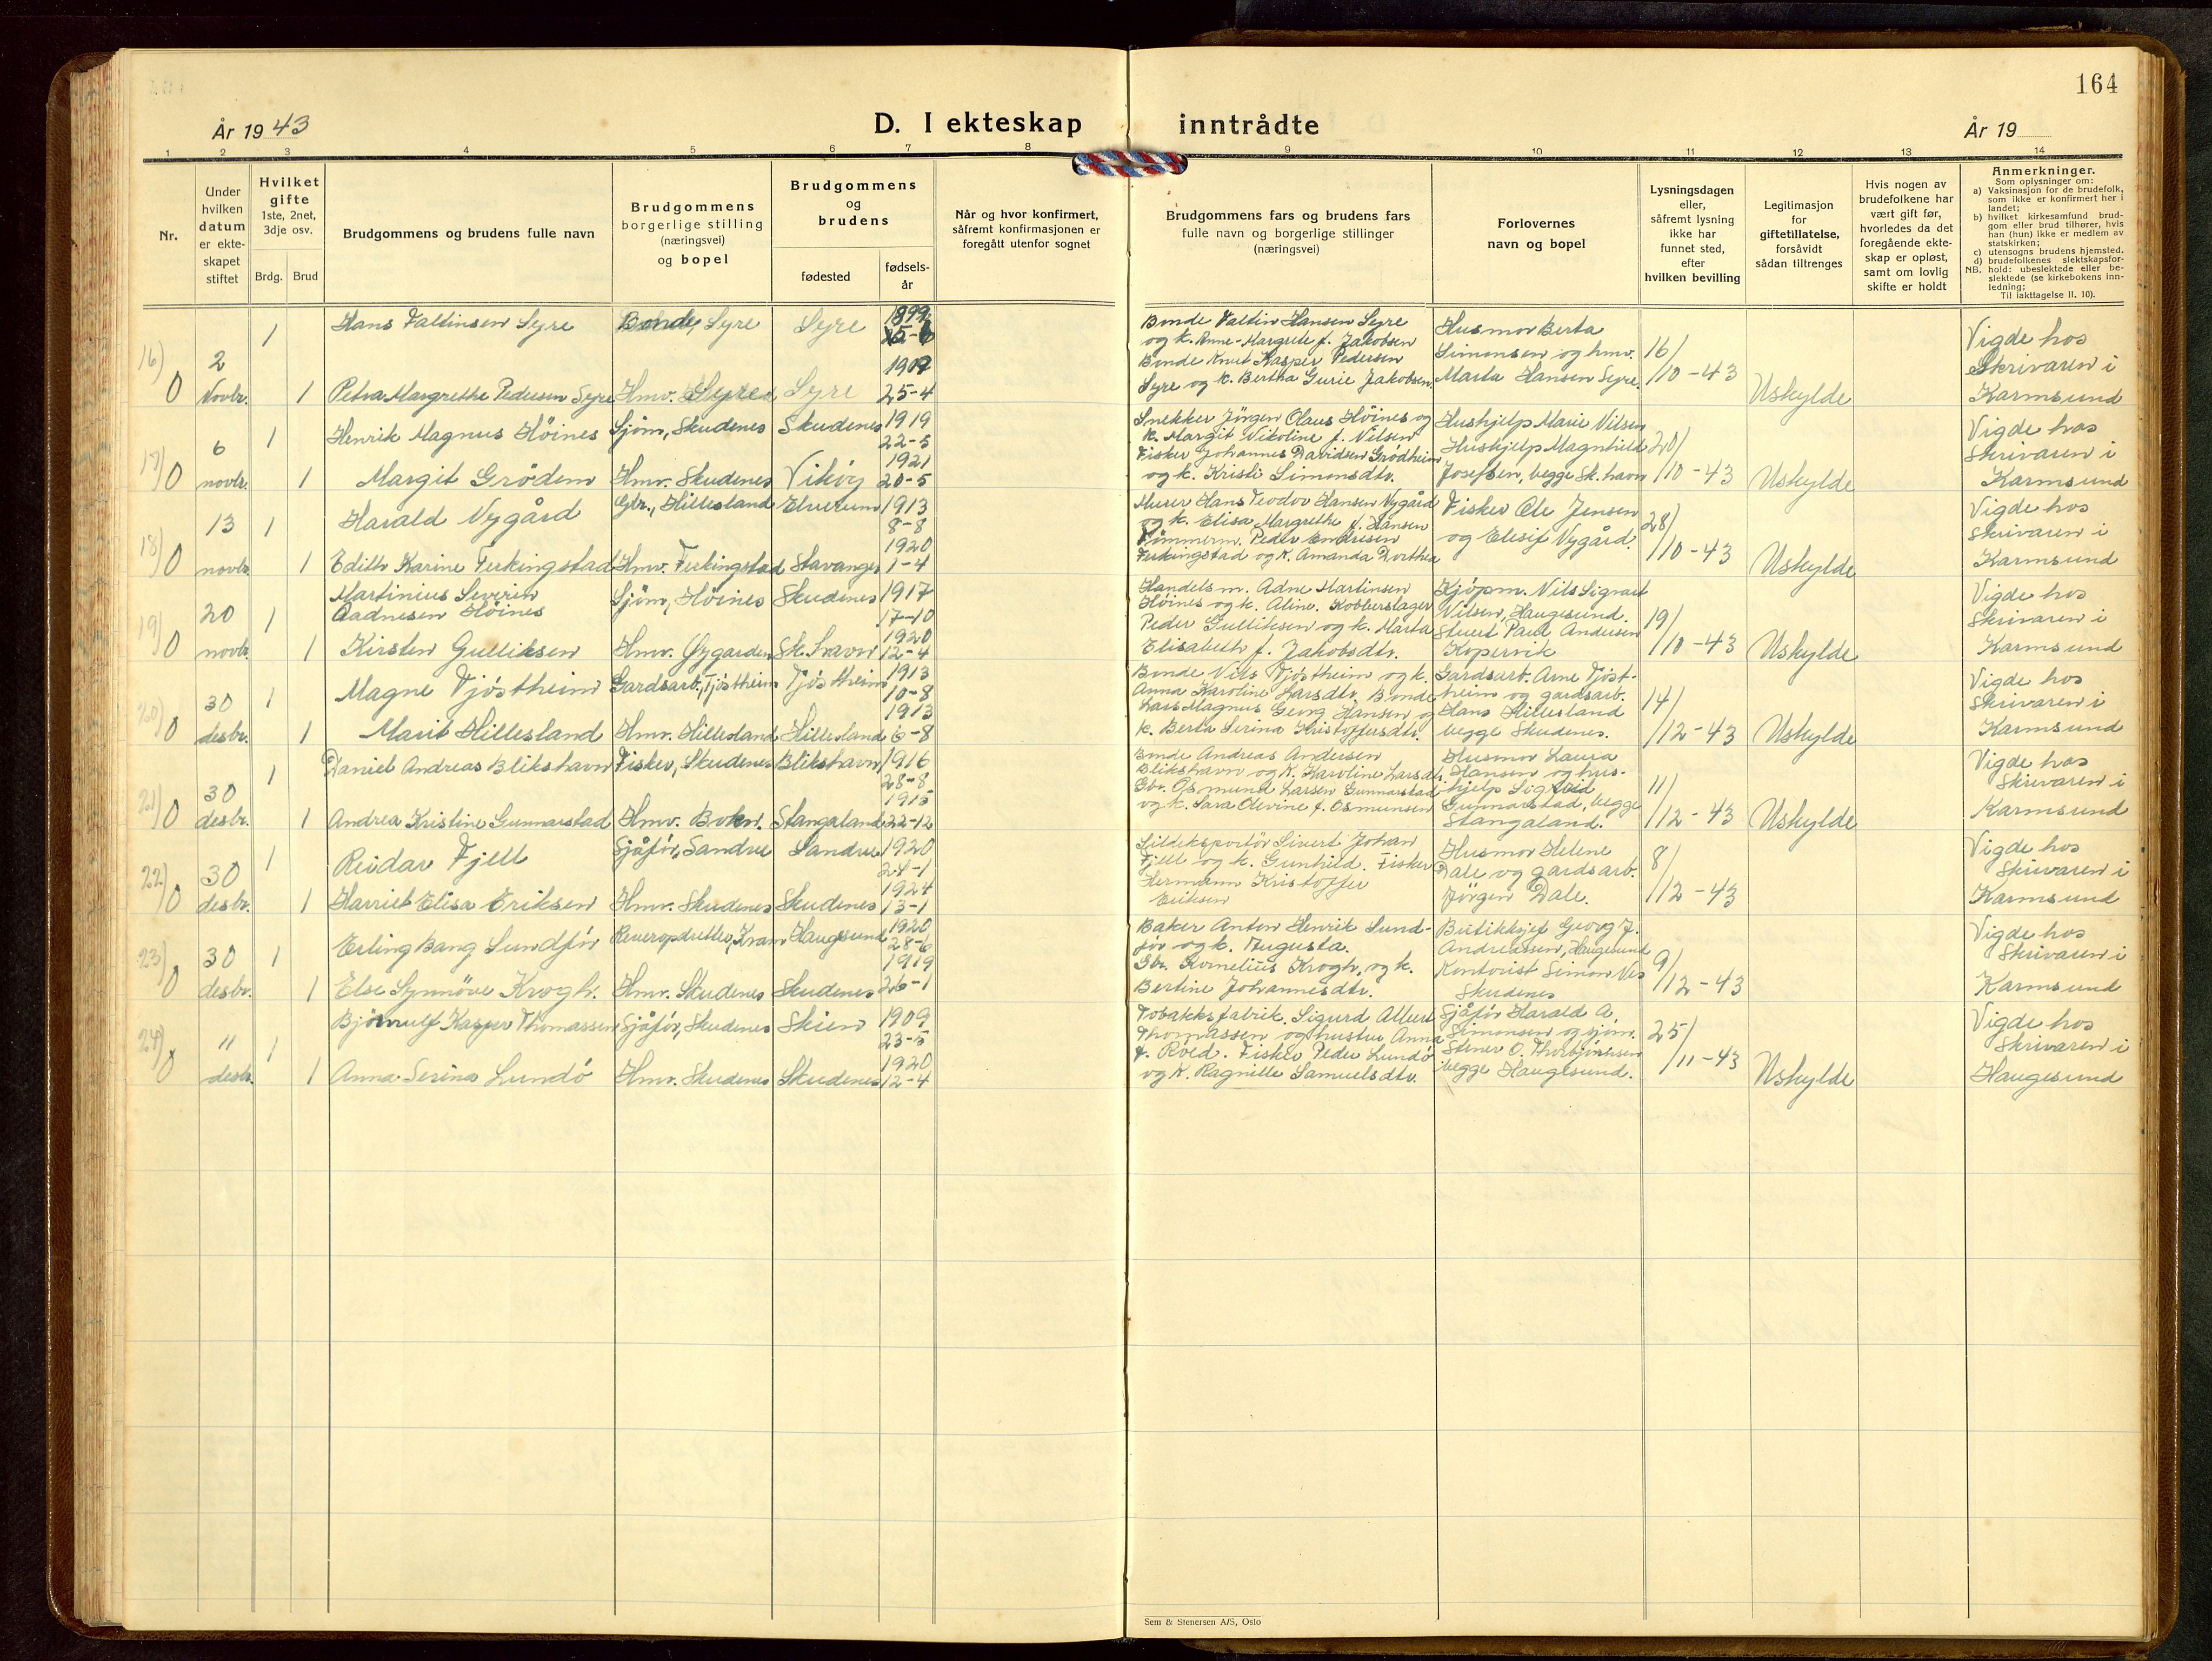 164
År 1943
D. I ekteskap inntrådte
År 19
1 2 3 4 5 6 7 8 9 10 11 12 13 14
Nr.
Under
hvilken
datum
er ekte-
skapet
stiftet
Hvilket
gifte
1ste, 2net,
3dje osv.
Brdg. Brud
Brudgommens og brudens fulle navn
Brudgommens
borgerlige stilling
(næringsvei)
og bopel
Brudgommens
og
brudens
fødested
fødsels-
år
Når og hvor konfirmert,
såfremt konfirmasjonen er
foregått utenfor sognet
Brudgommens fars og brudens fars
fulle navn og borgerlige stillinger
(næringsvei)
Forlovernes
navn og bopel
Lysningsdagen
eller,
såfremt lysning
ikke har
funnet sted,
efter
hvilken bevilling
Legitimasjon
for
giftetillatelse,
forsåvidt
sådan tiltrenges
Hvis nogen av
brudefolkene har
vært gift før,
hvorledes da det
foregående ekte-
skap er opløst,
samt om lovlig
skifte er holdt
Anmerkninger.
Som oplysninger om:
a) Vaksinasjon for de brudefolk,
som ikke er konfirmert her i
landet;
b) hvilket kirkesamfund brud-
gom eller brud tilhører, hvis
han (hun) ikke er medlem av
statskirken;
c) utensogns brudens hjemsted.
d) brudefolkenes slektskapsfor-
hold: ubeslektede eller be-
slektede (se kirkebokens inn-
ledning;
NB.
Til iakttagelse II. 10).
16) 0
2
Novbr.
1
Hans Valtinsen Syre
Bonde, Syre
Syre
1899
1
Petra Margrethe Pedersen Syre
Hmv. Syre
Syre
25-4
Bonde Valtin Hansen Syre
og k. Anne-Margrete f. Jakobsen
Bonde Knut Kasper Pedersen
Syre og k. Bertha Gurie Jakobsen.
Husmor Berta
Simonsen og hmv.
Marta Hansen Syre
16/
/10-43
Uskylde
Vigde hos
Skrivaren i
Karmsund
17) 0
6
novbr.
1
Henrik Magnus Höines
Sjöm, Skudenes
Skudenes
1919
22-5
1
Margit Grödem
Hmv. Skudenes
Viköy
1921
20-5
Snekker Jörgen Olaus Höines og
k. Margit Nikoline f. Nilsen
Fisker Johannes Davidsen Grödheim
og k. Kristi Simonsdtr.
Hushjelp Marie Nilsen
Hushjelp Magnhild
Josefsen, begge Sk.havn
20/
/10-43
Uskylde
Vigde hos
Skrivaren i
Karmsund
18) 0
13
novbr.
1
Harald Nygård
Gbr., Hillesland
Elverum
1913
8-8
1
Edith Karine Ferkingstad
Hmv. Ferkingstad
Stavanger
1920
1-4
Murer Hans Teodor Hansen Nygård
og k. Elisa Margrethe f. Hansen
Tömmerm. Peder Endresen
Ferkingstad og k. Amanda Dorthea
Fisker Ole Jensen
og Elisif Nygård.
28/
/10-43
Uskylde
Vigde hos
Skrivaren i
Karmsund
19) 0
20
novbr.
1
Martinius Severin
Aadnesen Höines
Sjöm, Höines
Skudenes
1917
17-10
1
Kirsten Gulliksen
Hmv. Øygarden
Sk.havn
1920
12-4
Handelsm. Adne Martinsen
Höines og k. Aline. Kobberslager
Peder Gulliksen og k. Marta
Elisabeth f. Jakobsdtr.
Kjöpm. Nils Signart
Nilsen, Haugesund.
Stuert Paul Andersen
Kopervik
19/
/10-43
Uskylde
Vigde hos
Skrivaren i
Karmsund
20) 0
30
desbr.
1
Magne Tjöstheim
Gardsarb., Tjöstheim
Tjöstheim
1913
10-8
1
Marit Hillesland
Hmv. Hillesland
Hillesland
1913
6-8
Bonde Nils Tjöstheim og k.
Anna Karoline Larsdtr. Bonde
Lars Magnus Georg Hansen og
k. Berta Serina Kristoffersdtr.
Gardsarb. Arne Tjöst-
heim og gardsarb.
Hans Hillesland
begge Skudenes.
14/
/12-43
Uskylde
Vigde hos
Skrivaren i
Karmsund
21) 0
30
desbr.
1
Daniel Andreas Blikshavn
Fisker, Skudenes
Blikshavn
1916
28-8
1
Andrea Kristine Gunnarstad
Hmv. Bokn.
Stangaland
1915
22-12
Bonde Andreas Andersen
Blikshavn og k. Karoline Larsdt.
Gbr. Osmund Larsen Gunnarstad
og k. Sara Olevine f. Osmunsen
Husmor Laura
Hansen og hus-
hjelp Sigveid
Gunnarstad, begge
Stangaland.
11/
/12-43
Uskylde
Vigde hos
Skrivaren i
Karmsund
22) 0
30
desbr.
1
Reidar Fjell
Sjåför, Sandve
Sandve
1920
24-1
1
Harriet Elisa Eriksen
Hmv. Skudenes
Skudenes
1924
13-1
Sildeksportör Sivert Johan
Fjell og k. Gunhild. Fisker
Hermann Kristoffer
Eriksen
Husmor Helene
Dale og gardsarb.
Jörgen Dale.
8/
/12-43
Vigde hos
Skrivaren i
Karmsund
23) 0
30
desbr.
1
Erling Bang Sundför
Reveropdretter,
Haugesund
1920
28-6
1
Else Synnöve Krogh.
Hmv. Skudenes
Skudenes
1919
26-1
Baker Anton Henrik Sund-
för og k. Augusta.
Gbr. Kornelius Krogh, og k.
Bertine Johannesdtr.
Butikksjef Georg J.
Andreassen, Haugesund
Kontorist Simon Nes
Skudenes
9/
/12-43
Vigde hos
Skrivaren i
Karmsund
24) 0
"
desbr.
1
Björnulf Kasper Thomassen
Sjåför, Skudenes
Skien
1909
23-5
1
Anna Serina Lundö
Hmv. Skudenes
Skudenes
1920
12-4
Tobakksfabrik. Sigurd Albert
Thomassen og hustru Anna
f. Roed. Fisker Peder Lundö
og k. Ragnille Samuelsdtr.
Sjåför Harald A.
Simonsen og sjöm.
Stener O. Thorbjörnsen
begge Haugesund.
25/
/11-43
Uskylde
Vigde hos
Skrivaren i
Haugesund
Sem & Stenersen A/S, Oslo